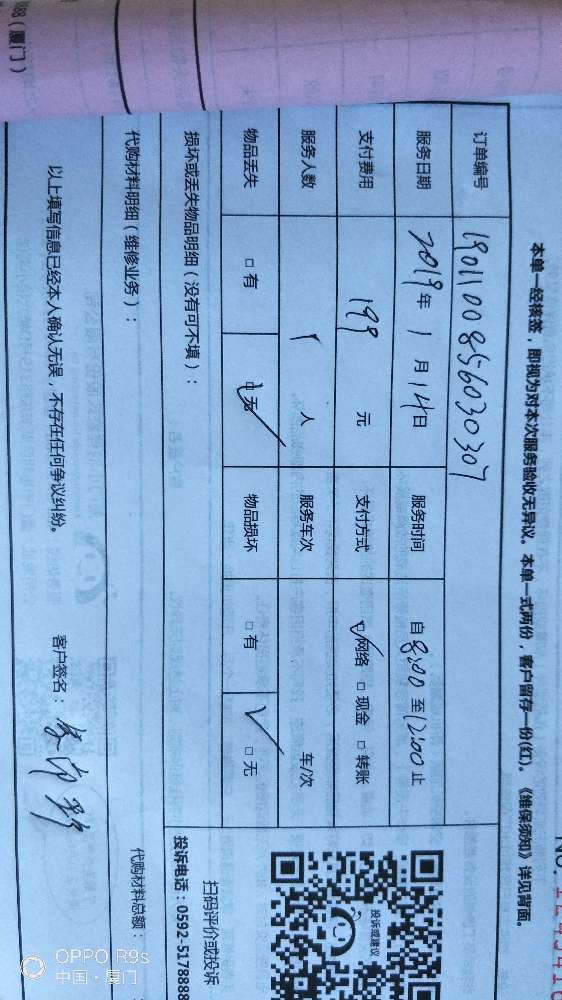 88（厦门）
本单一经核签，即视为对本次服务验收无异议。本单一式两份，客户留存一份(红)。《维保须知》详见背面。
订单编号 1901100856030307
服务日期 2019年1月14日 服务时间 自8:00至12:00止
支付费用 199元 支付方式 ☑网络 □现金 □转账
服务人数 1人 服务车次 车/次
物品丢失 □有 ☑无 物品损坏 □有 ☑无
损坏或丢失物品明细（没有可不填）：
代购材料明细（维修业务）： 代购材料总额：
以上填写信息已经本人确认无误，不存在任何争议纠纷。 客户签名：
投诉或建议
扫码评价或投诉
投诉电话：0592-5178888
OPPO R9s
中国·厦门